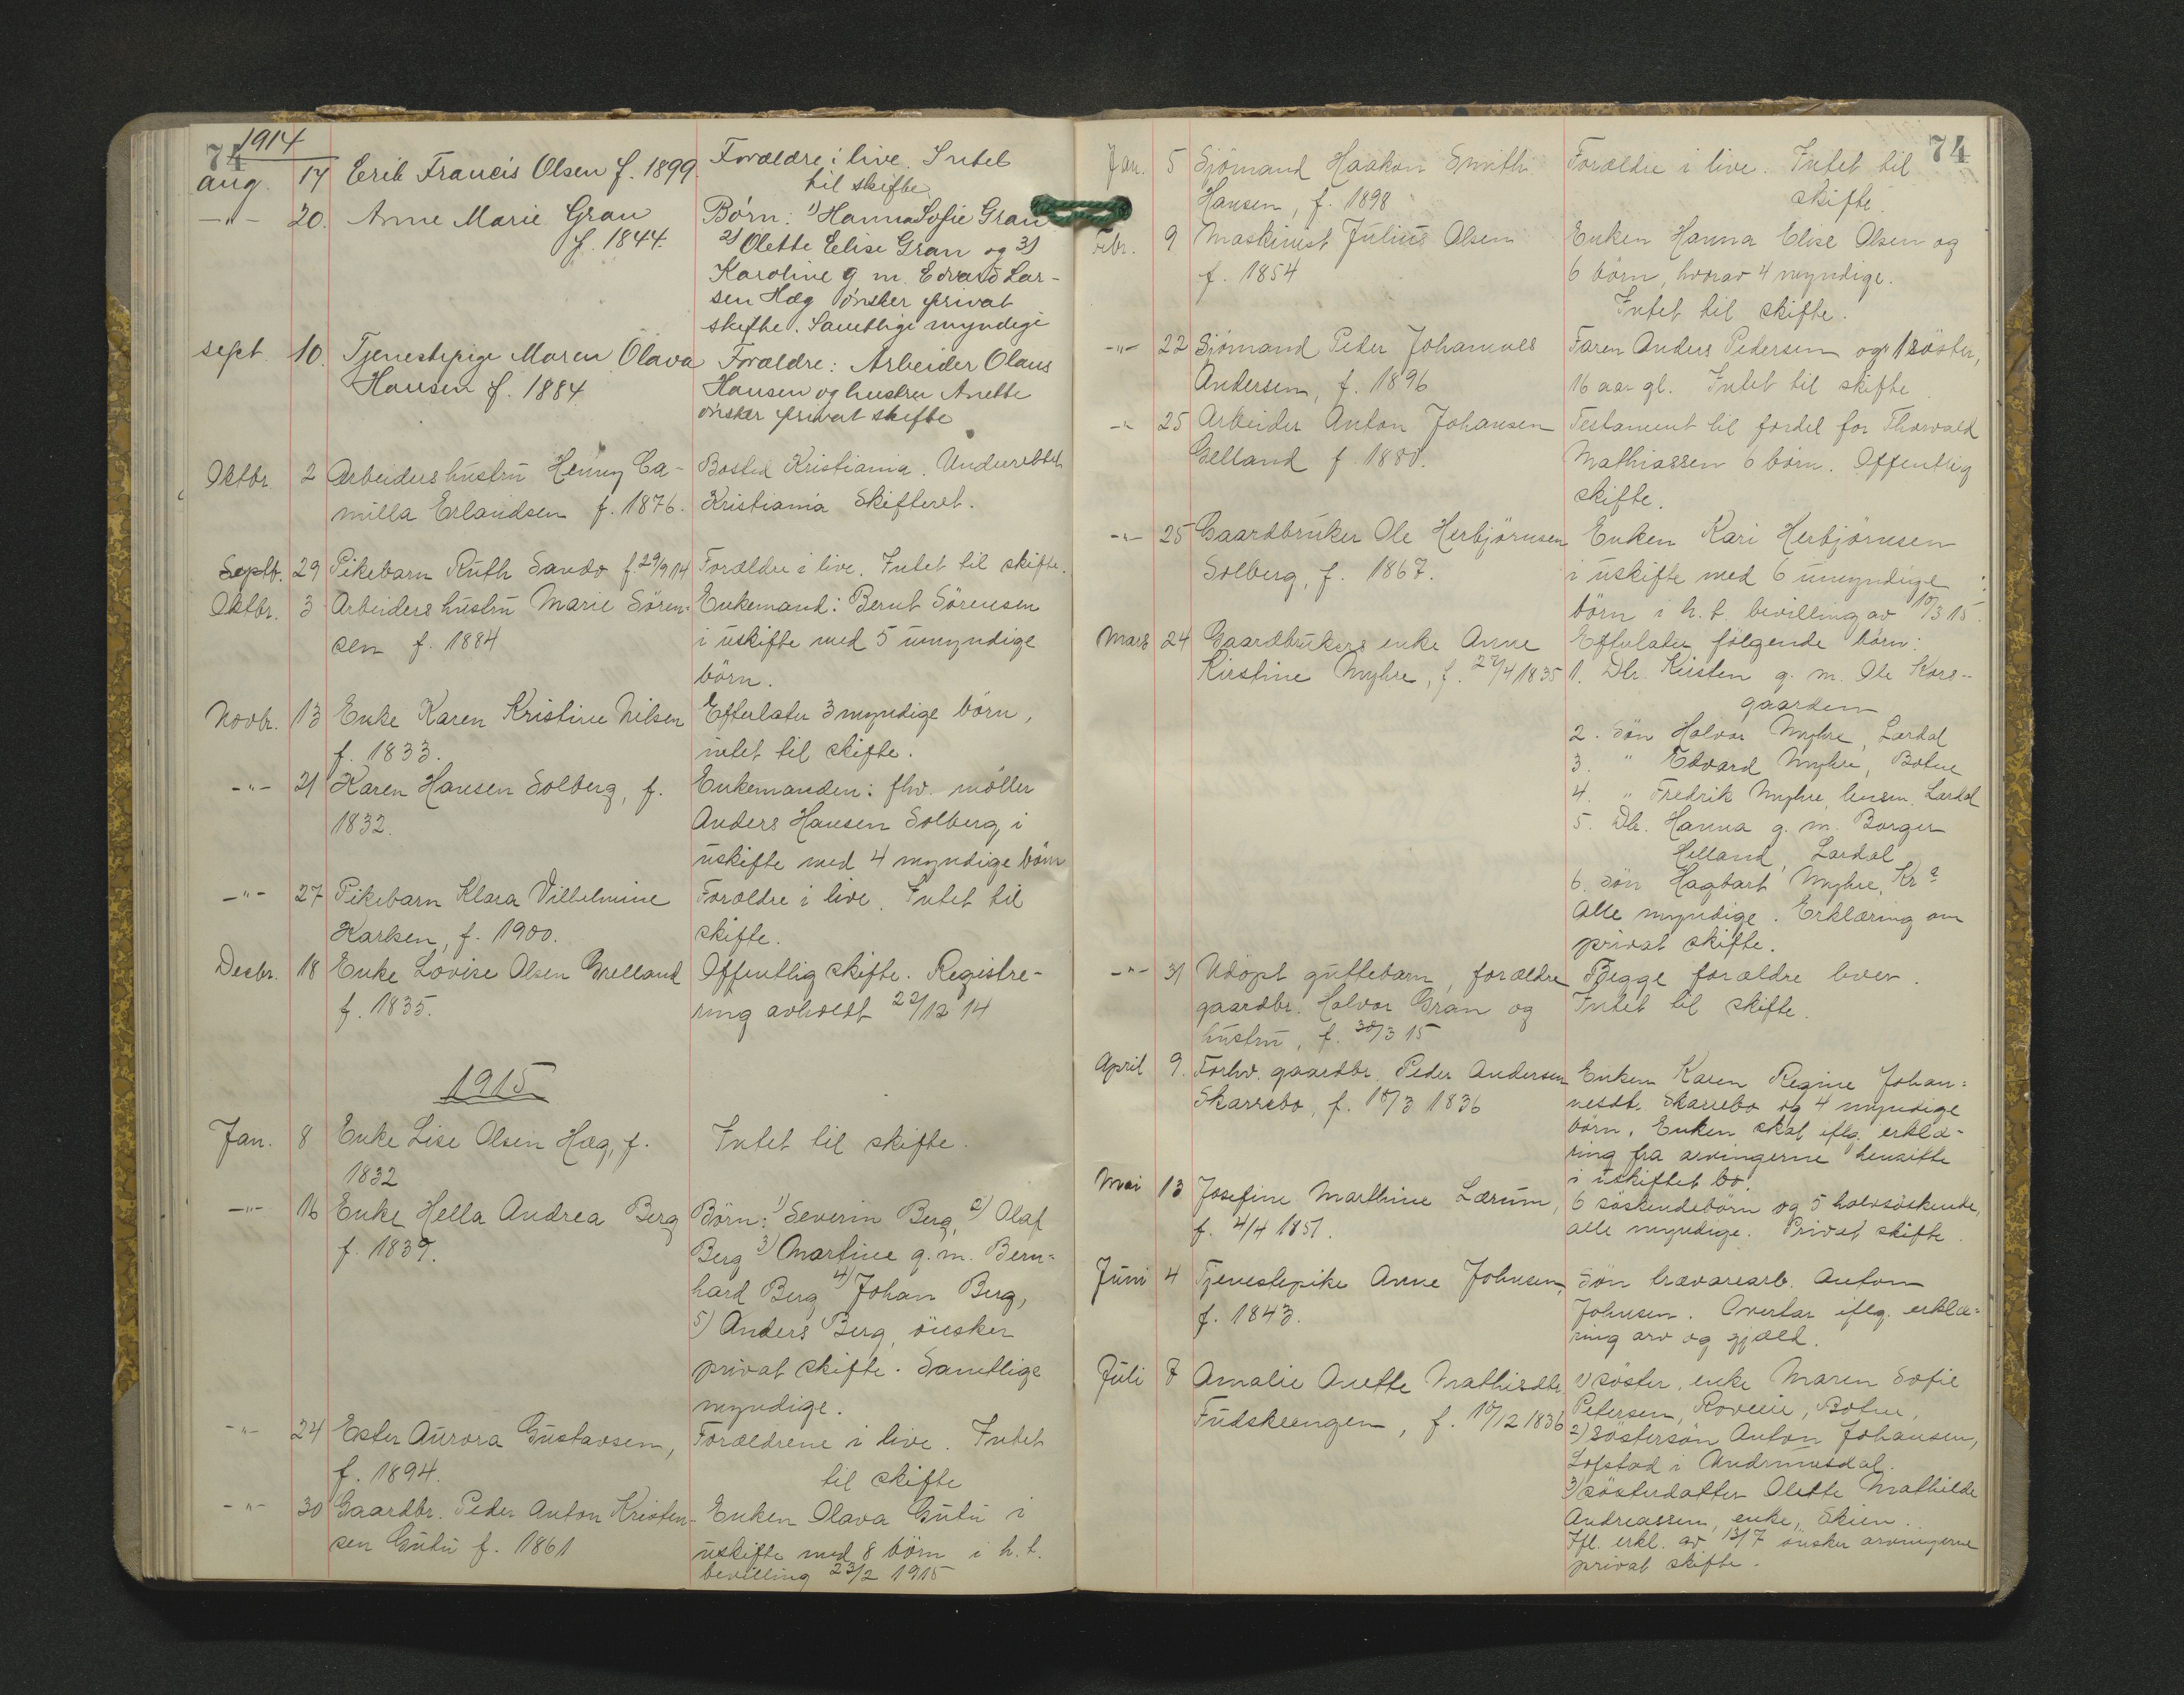 74
1914
aug. 17 Erik Francis Olsen f. 1899. Forældre i live. Intet
til skifte.
-"- 20. Anne Marie Gran Børn: 1) Hanna Sofie Gran
f. 1844. 2) Olette Elise Gran og 3)
Karoline g. m. Edvard Lar-
sen Hæg ønsker privat
skifte. Samtlige myndige
sept. 10. Tjenestepige Maren Olava Forældre: Arbeider Olaus
Hansen f. 1884 Hansen og hustru Anette
ønsker privat skifte
Oktbr. 2 Arbeiders hustru Henny Ca- Bosted Kristiania. Underrettet
milla Erlandsen f. 1876. Kristiania Skifteret.
Septb. 29 Pikebarn Ruth Sando f. 29/9 14 Forældre i live. Intet til skifte.
Oktbr. 3 Arbeiders hustru Marie Sören- Enkemand: Bernt Sörensen
sen f. 1884 i uskifte med 5 umyndige
börn.
Novbr. 13 Enke Karen Kristine Nilsen Efterlater 3 myndige börn,
f. 1833. intet til skifte.
-"- 21 Karen Hansen Solberg, f. Enkemanden: fhv. möller
1832. Anders Hansen Solberg, i
uskifte med 4 myndige börn
-"- 27 Pikebarn Klara Vilhelmine Forældre i live. Intet til
Karlsen, f. 1900. skifte.
Decbr. 18 Enke Lovise Olsen Grelland Offentlig skifte. Registre-
f. 1835. ring avholdt 22/12 14
1915
Jan. 8 Enke Lise Olsen Hæg, f. Intet til skifte.
1832
-"- 16 Enke Hella Andrea Berg Börn: 1) Severin Berg, 2) Olaf
f. 1839. Berg 3) Martine g. m. Bern-
hard Berg 4) Johan Berg,
5) Anders Berg, önsker
privat skifte. Samtlige
myndige.
-"- 24 Ester Aurora Gustavsen, Forældrene i live. Intet
f. 1894. til skifte
-"- 30 Gaardbr. Peder Anton Kristen- Enken Olava Gutu i
sen Gutu f. 1861 uskifte med 8 börn i h. t.
bevilling 23/2 1915
74
Jan. 5 Sjömand Haakon Smith Forældre i live. Intet til
Hansen, f. 1898 skifte.
Febr. 9 Maskinist Julius Olsen Enken Hanna Elise Olsen og
f. 1854 6 börn, hvorav 4 myndige.
Intet til skifte.
-"- 22 Sjömand Peder Johannes Faren Anders Pedersen og 1 söster,
Andersen, f. 1896 16 aar gl. Intet til skifte
-"- 25 Arbeider Anton Johansen Testament til fordel for Thorvald
Gelland f. 1880. Mathiassen 6 börn. Offentlig
skifte.
-"- 25 Gaardbruker Ole Herbjörnsen Enken Kari Herbjörnsen
Solberg, f. 1867. i uskifte med 6 umyndige
börn i h. t. bevilling av 10/3 15.
Mars 24 Gaardbrukers enke Anne Efterlater følgende börn:
Kirstine Myhre, f. 27/4 1835 1. Dtr. Kirsten g. m. Ole Kors-
gaarden
2. Sön Halvor Myhre, Lardal
3. " Edvard Myhre, Botne
4. " Fredrik Myhre, lensm. Lardal
5. Dtr. Hanna g. m. Borger
Helland, Lardal
6. Sön Hagbart Myhre, Kra
Alle myndige. Erklæring om
privat skifte.
-"- 31 Udöpt guttebarn, forældre Begge forældre lever.
gaardbr. Halvor Gran og Intet til skifte.
hustru, f. 30/3 15
April 9. Forhv. gaardbr. Peder Andersen Enken Karen Regine Johan-
Skarrebo, f. 10/3 1836 nesdtr. Skarrebo og 4 myndige
börn. Enken skal iflg. erklæ-
ring fra arvingerne hensitte
i uskiftet bo
Mai 13 Josefine Marthine Lærum, 6 söskendebörn og 5 halvsöskende,
f. 4/4 1851. alle myndige. Privat skifte.
Juni 4 Tjenestepike Anne Johnsen, Sön trævarearb. Anton
f. 1843. Johnsen. Overtar iflg. erklæ-
ring arv og gjæld.
Juli 7 Amalie Anette Mathisdtr. 1) söster, enke Maren Sofie
Fudskeengen, f. 10/12 1836 Petersen, Botne,
2) söstersön Anton Johansen,
Lofstad i Andrimsdal.
3) sösterdatter Olette Mathilde
Andreassen, enke, Skien.
Ifl. erkl. av 13/7 önsker arvingerne
privat skifte.